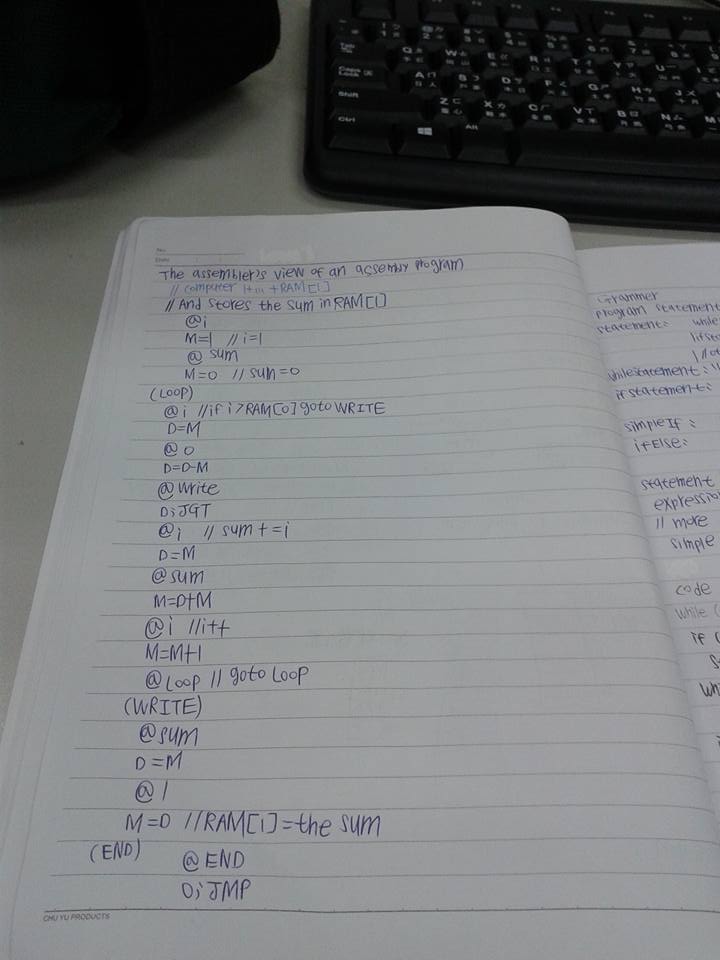 No.
Date
The assembler's view of an assembly program
// computer 1+...+RAM[1]
// And stores the sum in RAM[1]
@i
M=1 // i=1
@ sum
M=0 // sum=0
(LOOP)
@i // if i>RAM[0] goto WRITE
D=M
@ 0
D=D-M
@Write
D;JGT
@i // sum+=i
D=M
@sum
M=D+M
@i // i++
M=M+1
@Loop // goto Loop
(WRITE)
@sum
D=M
@1
M=D // RAM[1]=the sum
(END) @END
0;JMP
CHU YU PRODUCTS
Grammer
program statement
statement: while
ifsta
whilestatement:
ifstatement:
simpleIf:
ifElse:
statement
expression
// more
simple
code
while (
if (
Tab
Caps Lock
Shift
Ctrl
Alt
Q W E R T Y U
A S D F G H J
Z X C V B N M